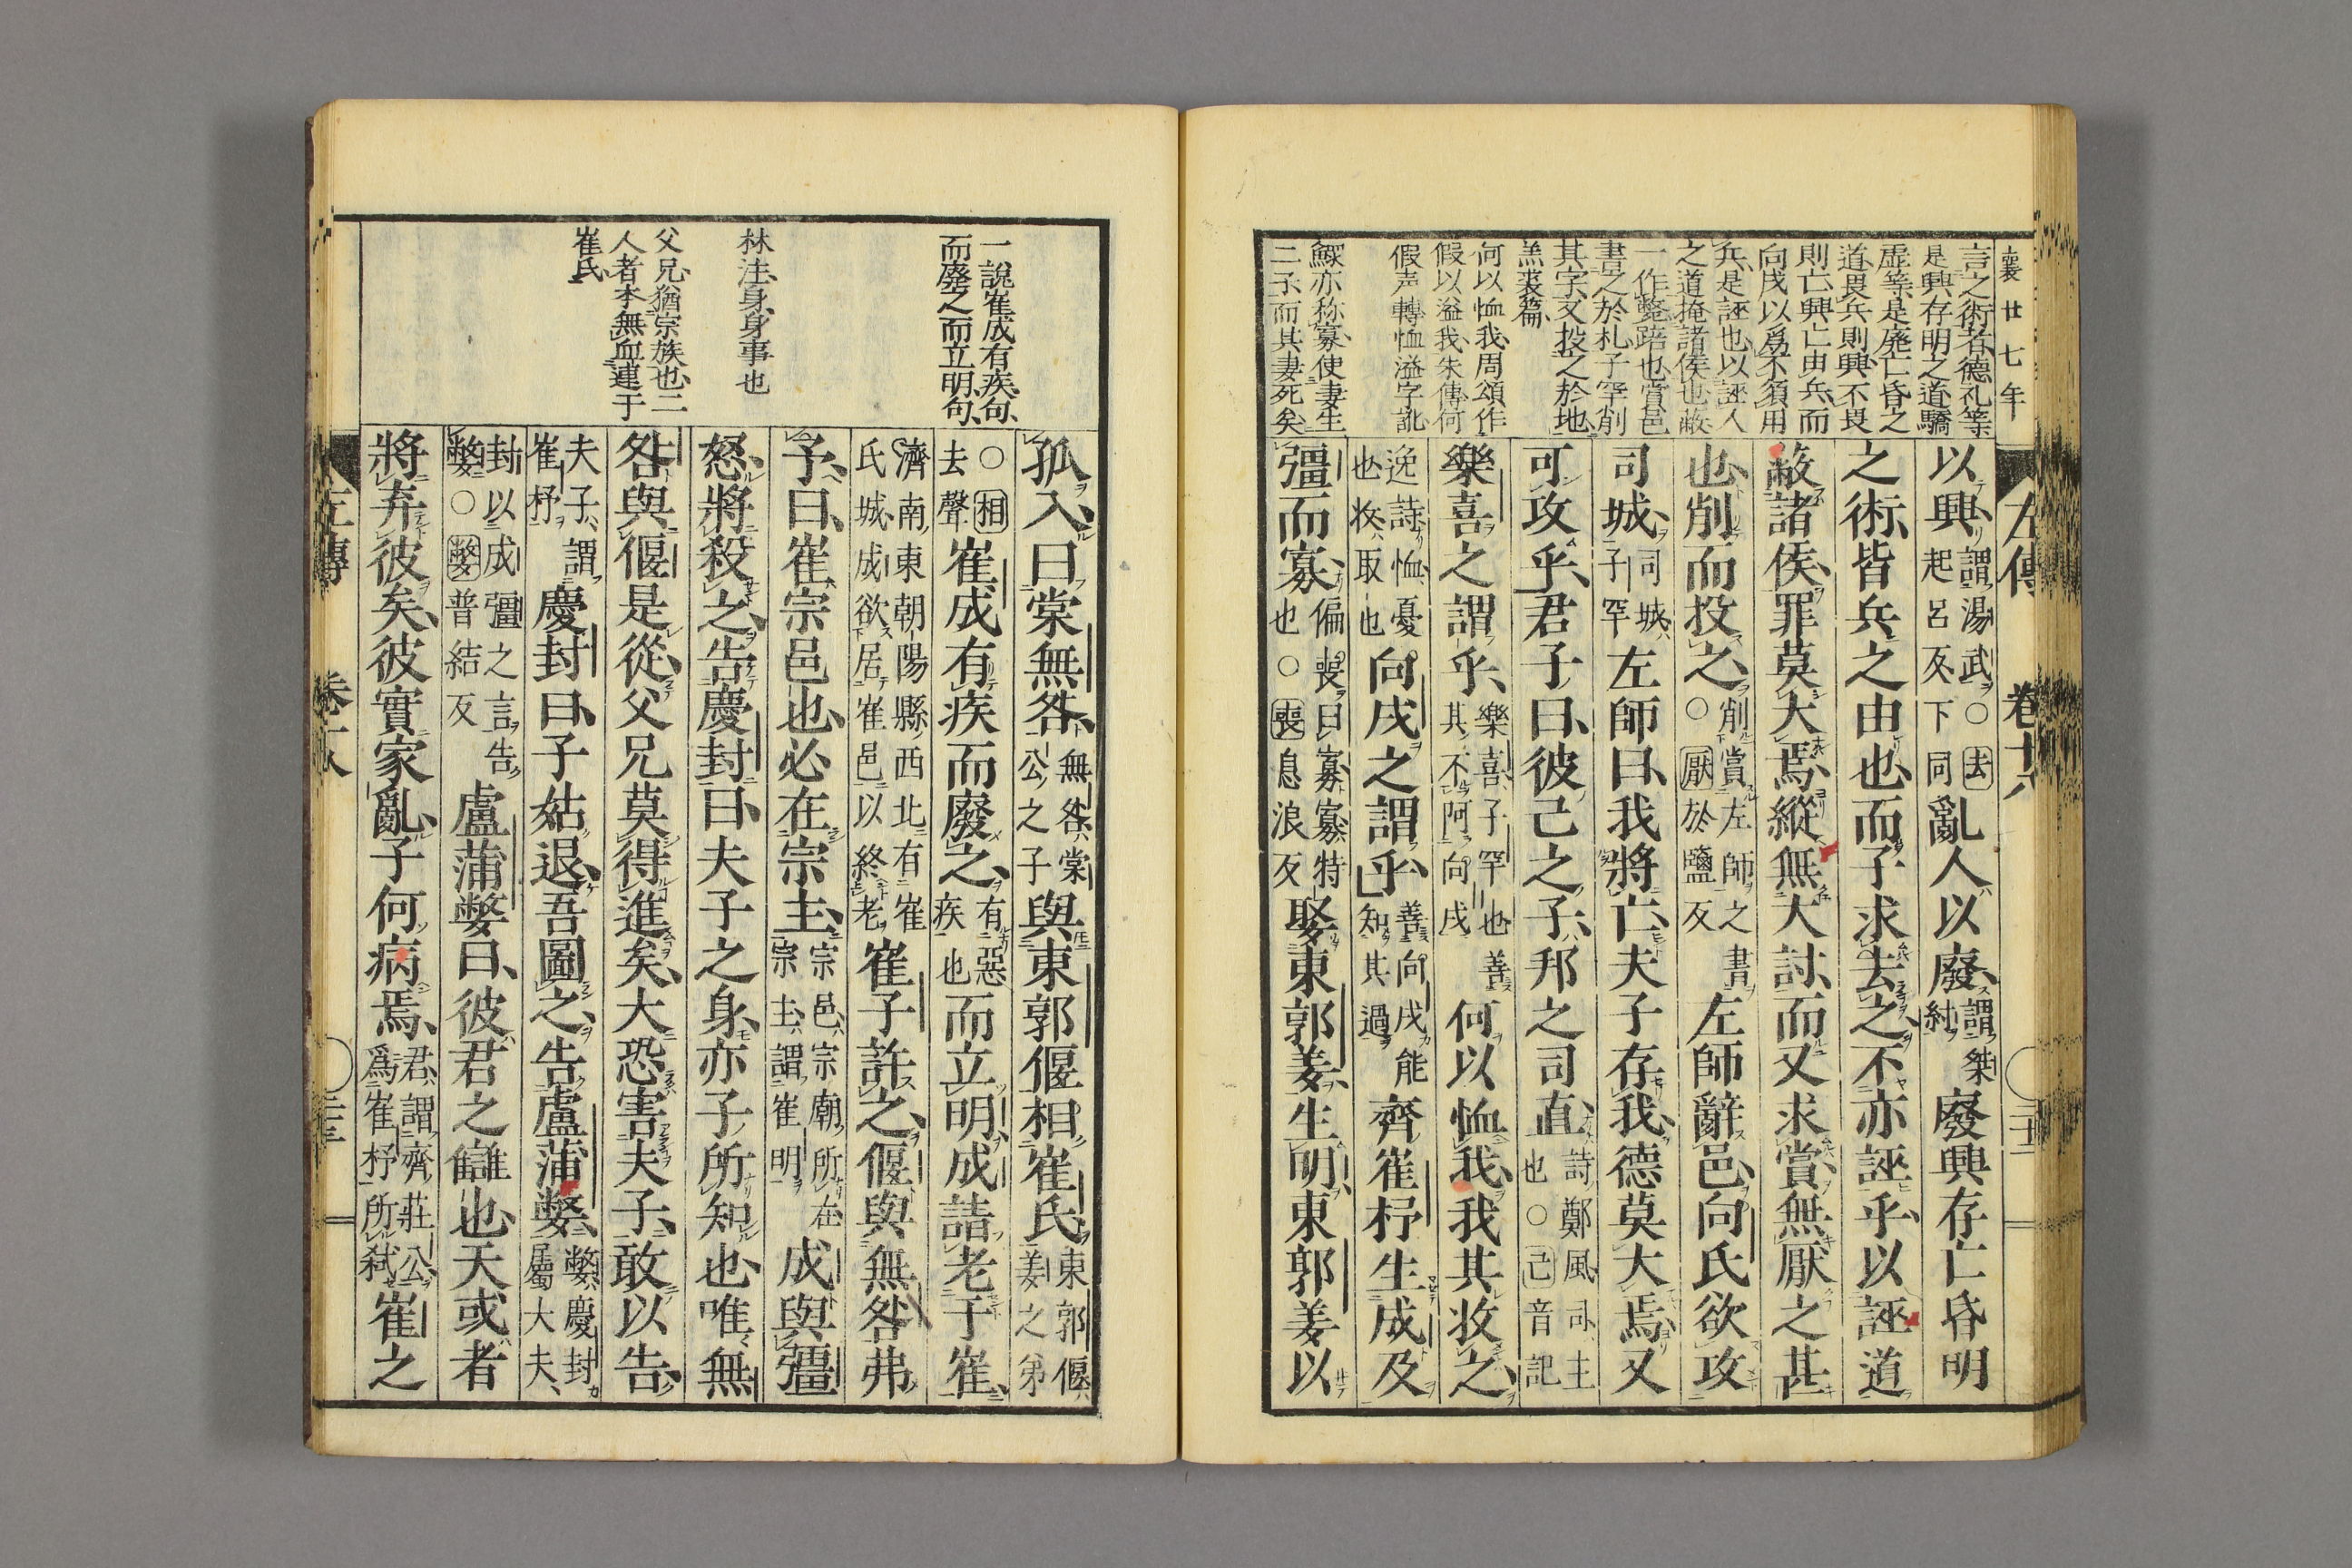 襄廿七年
左傳 卷十八
言之術者德礼等
是興存明之道驕
虚等是廃亡昏之
道畏兵則興不畏
則亡興亡由兵而
向戌以爲不須用
兵是誣也以誣人
之道掩諸侯也蔽
一作斃踣也賞邑
書之於札子罕削
其字又投之於地
羔裘篇
何以恤我周頌作
假以溢我朱傳何
假声轉恤溢字訛
鰥亦称寡使妻生
二子而其妻死矣
以興謂湯武○去起呂反下同亂人以廢謂桀紂廢興存亡昏明
之術皆兵之由也而子求去之不亦誣乎以誣道
蔽諸侯罪莫大焉縱無大討而又求賞無厭之甚
也削而投之削賞左師之書○厭於鹽反左師辭邑向氏欲攻
司城司城子罕左師曰我將亡夫子存我德莫大焉又
可攻乎君子曰彼己之子邦之司直詩鄭風司主也○己音記
樂喜之謂乎樂喜子罕也善其不阿向戌何以恤我我其收之
逸詩恤憂也收取也向戌之謂乎善向戌能知其過齊崔杼生成及
彊而寡偏喪曰寡寡特也○喪息浪反娶東郭姜生明東郭姜以
一說崔成有疾句
而廢之而立明句
林注身身事也
父兄猶宗族也二
人者本無血連于
崔氏
孤入曰棠無咎無咎棠公之子與東郭偃相崔氏東郭偃姜之弟
○相去聲崔成有疾而廢之有惡疾也而立明成請老于崔
濟南東朝陽縣西北有崔氏城成欲居崔邑以終老崔子許之偃與無咎弗
予曰崔宗邑也必在宗主宗邑宗廟所在宗主謂崔明成與彊
怒將殺之告慶封曰夫子之身亦子所知也唯無
咎與偃是從父兄莫得進矣大恐害夫子敢以告
夫子謂崔杼慶封曰子姑退吾圖之告盧蒲嫳嫳慶封屬大夫
封以成彊之言告嫳○嫳普結反盧蒲嫳曰彼君之讎也天或者
將弃彼矣彼實家亂子何病焉君謂齊莊公爲崔杼所弒崔之
左傳